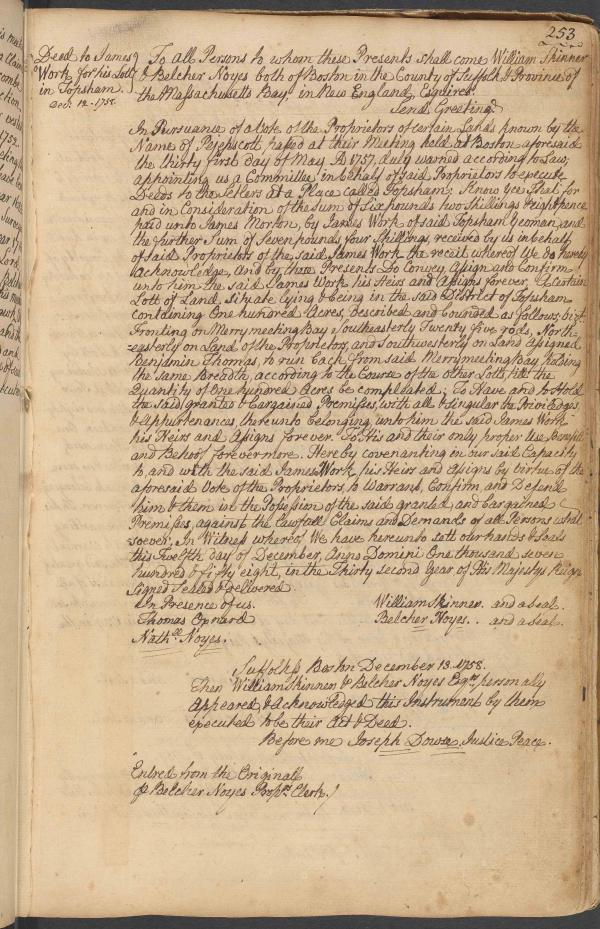 253
Deed to James
Work for his Lott
in Topsham.
Dec.r 12. 1758.
To All Persons to whom these Presents shall come William Skinner
& Belcher Noyes both of Boston in the County of Suffolk & Province of
the Massachusetts Bay, in New England, Esquires.
Send Greeting
In Pursuance of a Vote of the Proprietors of certain Lands known by the
Name of Pejepscott, passed at their Meeting held at Boston aforesaid
the thirty first day of May AD 1757, duly warned according to Law,
appointing us a Committee in behalf of said Proprietors to execute
Deeds to the Setlers at a Place called Topsham; Know yee That for
and in Consideration of the Sum of Six pounds two Shillings & eight pence
paid unto James Morton, by James Work of said Topsham Yeoman, and
the further Sum of Seven pounds four Shillings, received by us in behalf
of said Proprietors of the said James Work the receit whereof We do hereby
acknowledge, And by these Presents Do Convey, Assign and Confirm
unto him the said James Work his Heirs and Assigns forever, A certain
Lott of Land, situate lying & being in the said District of Topsham
containing One hundred Acres, described and bounded as follows, vizt
Fronting on Merrymeeting Bay Southeasterly Twenty five rods, North-
easterly on Land of the Proprietors, and Southwesterly on Land assigned
Benjamin Thomas, to run back from said Merrymeeting Bay, holding
the same Breadth, according to the Course of the other Lotts, till the
Quantity of One hundred Acres be compleated; To Have and to Hold
the said granted & bargained Premisses, with all & singular the Priviledges
& Appurtenances, thereunto belonging, unto him the said James Work
his Heirs and Assigns forever. To His and their only proper Use Benefit
and Behoof forevermore. Hereby covenanting in our said Capacity
to, and with the said James Work, his Heirs and Assigns by virtue of the
aforesaid Vote of the Proprietors, to Warrant, Confirm, and Defend
him & them in the Possession of the said granted, and bargained
Premisses, against the lawfull Claims and Demands of all Persons what
soever; In Witness whereof We have hereunto sett our hands & Seals
this Twelfth day of December, Anno Domini One thousand seven
hundred & fifty eight, in the Thirty second Year of His Majestys Reign
Signed Sealed & delivered
In Presence of us. William Skinner. and a Seal.
Thomas Benard Belcher Noyes. . and a Seal.
Nathll Noyes.
Suffolk ss Boston December 13. 1758.
Then William Skinner & Belcher Noyes Esqrs personally
appeared & Acknowledged this Instrument by them
executed to be their Act & Deed.
Before me Joseph Dowse Justice Peace.
Entred from the Originall
P Belcher Noyes Proprs Clerk.